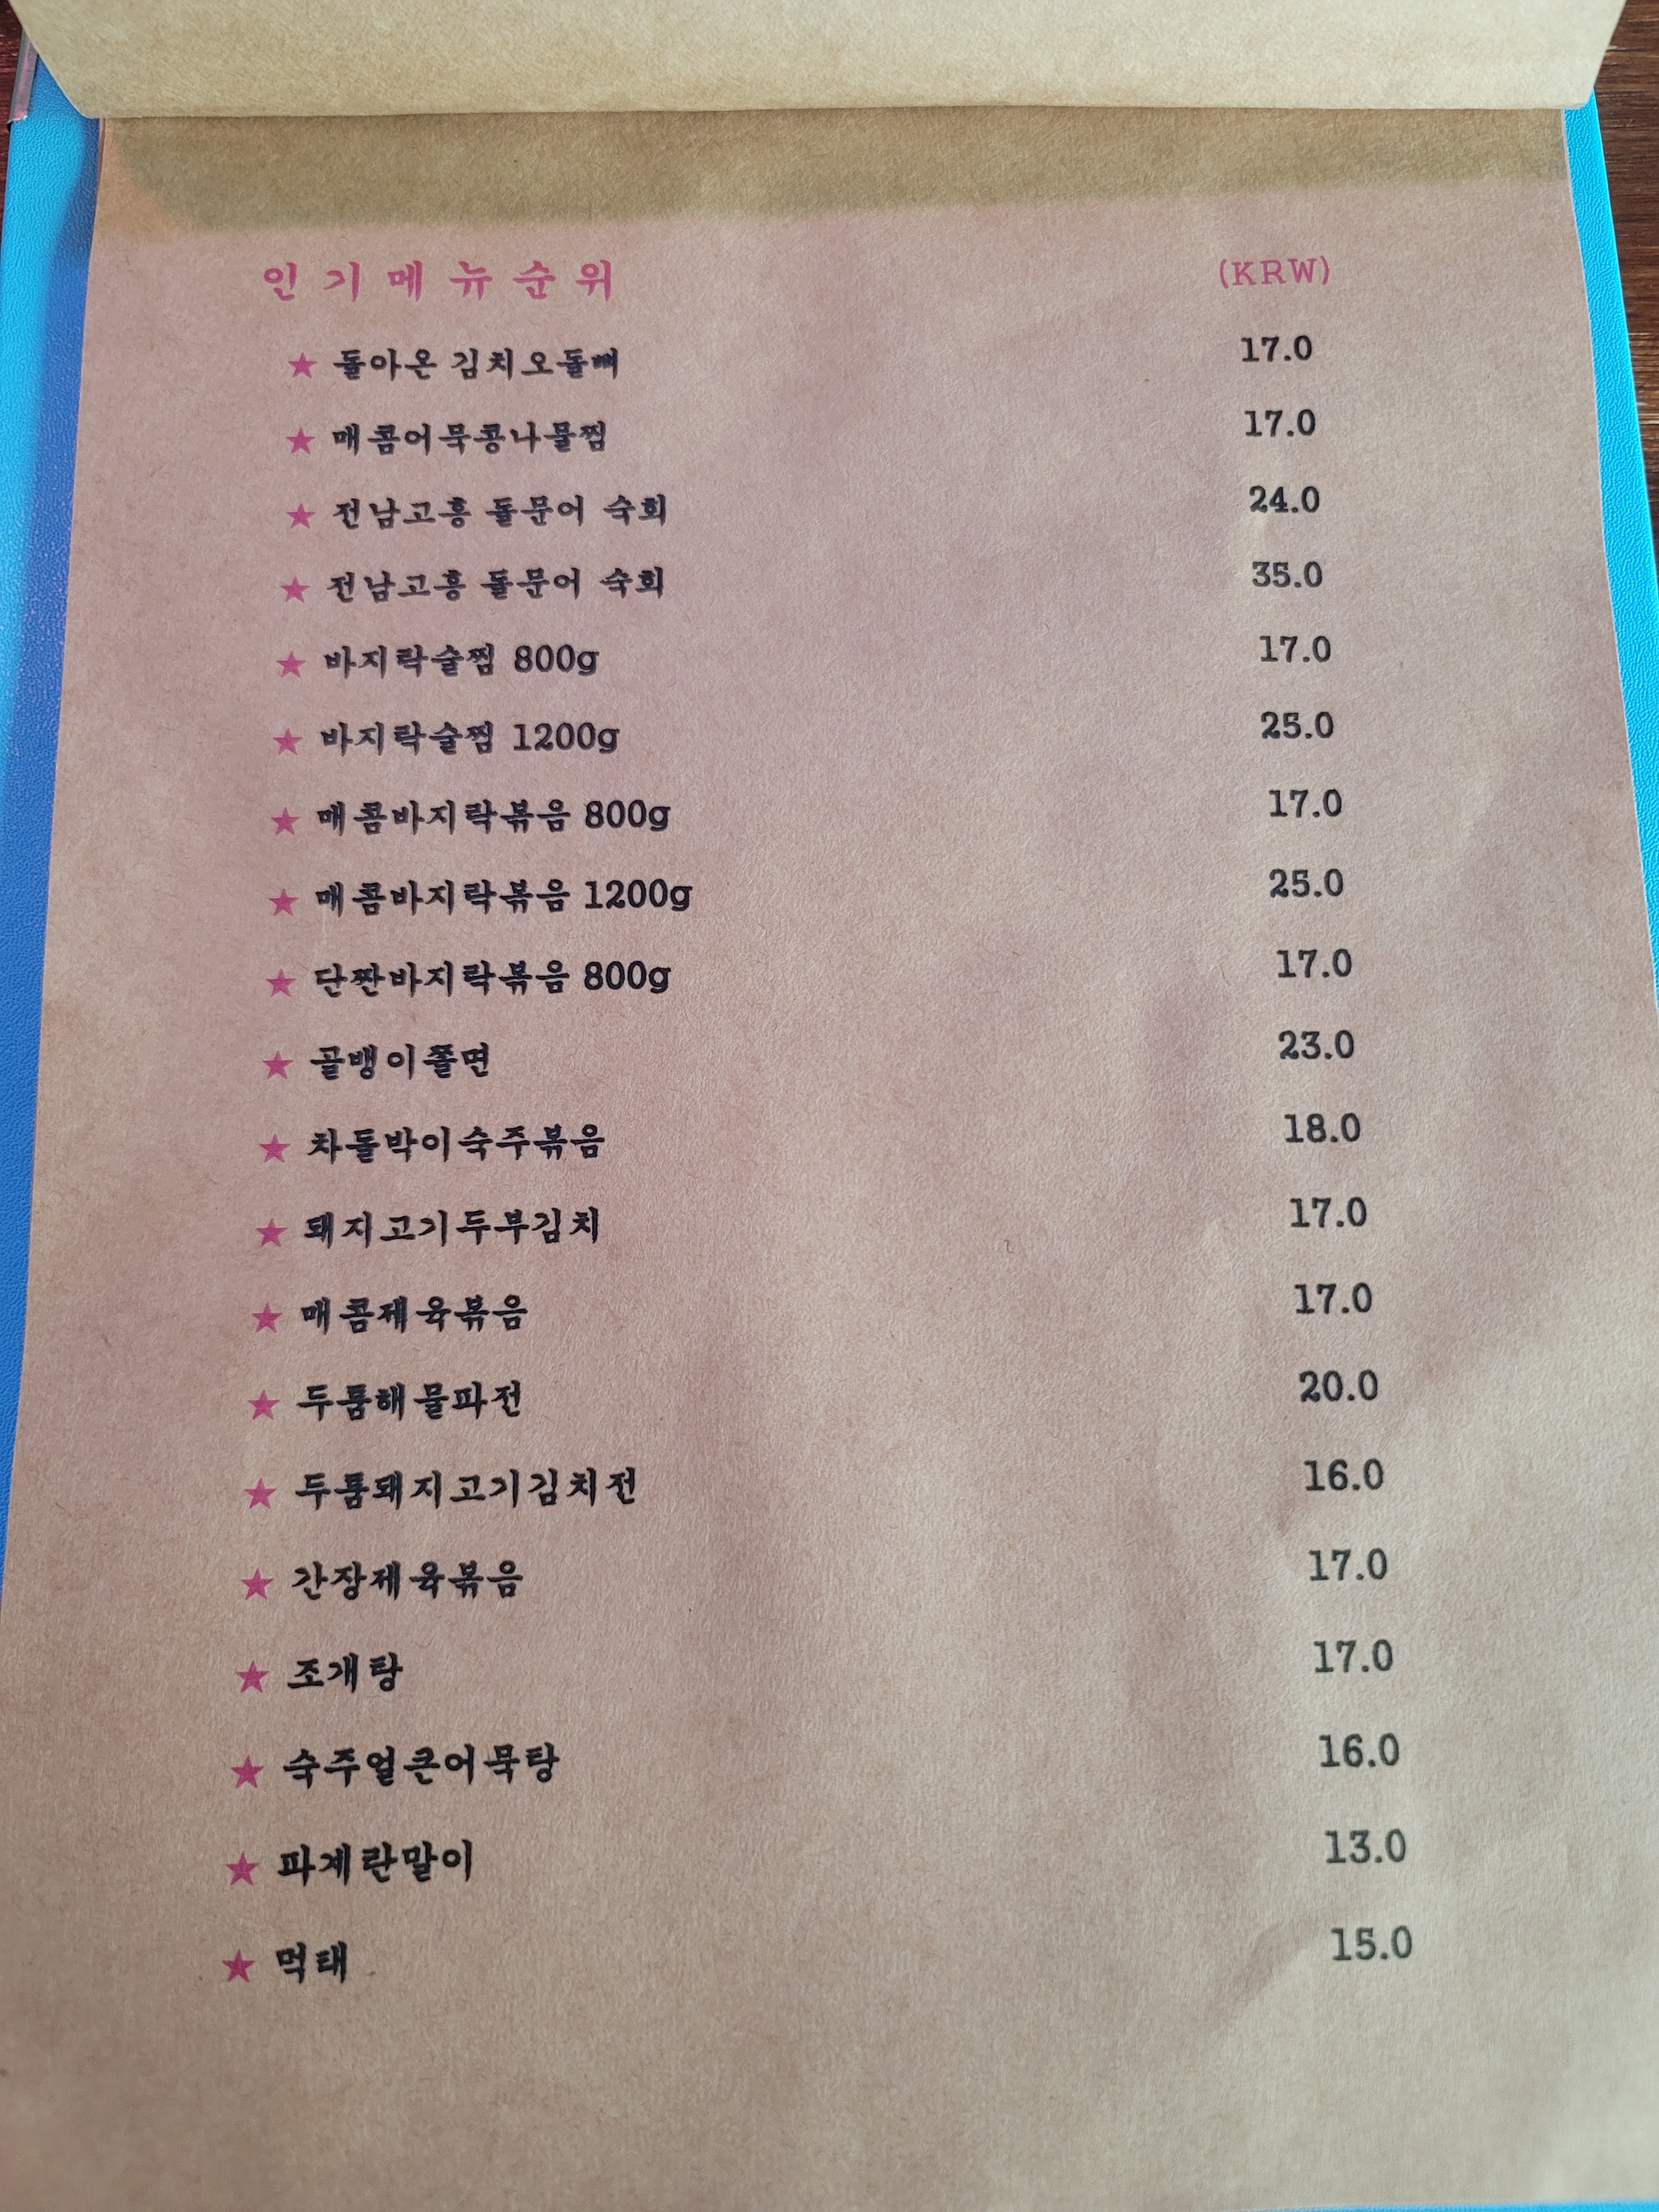 인기메뉴순위 (KRW)
★ 돌아온 김치오돌뼈 17.0
★ 매콤어묵콩나물찜 17.0
★ 전남고흥 돌문어 숙회 24.0
★ 전남고흥 돌문어 숙회 35.0
★ 바지락술찜 800g 17.0
★ 바지락술찜 1200g 25.0
★ 매콤바지락볶음 800g 17.0
★ 매콤바지락볶음 1200g 25.0
★ 단짠바지락볶음 800g 17.0
★ 골뱅이쫄면 23.0
★ 차돌박이숙주볶음 18.0
★ 돼지고기두부김치 17.0
★ 매콤제육볶음 17.0
★ 두툼해물파전 20.0
★ 두툼돼지고기김치전 16.0
★ 간장제육볶음 17.0
★ 조개탕 17.0
★ 숙주얼큰어묵탕 16.0
★ 파계란말이 13.0
★ 먹태 15.0